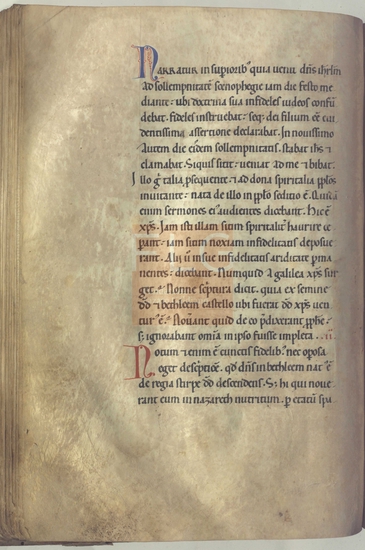 Narratur in superiorib; quia venit dn̄s ihrłm
ad sollempnitatē scenophegie iam die festo me
diante: ubi doctrina sua infideles iudeos confu
debat. fideles instruebat: seq; dei filium eē evi
dentissima assertione declarabat. In novissimo
autem die eiusdem sollempnitatis. stabat ih̄s ⁊
clamabat. Siquis sitit: veniat ad me ⁊ bibat.
Illo g̊ talia ꝓsequente ⁊ ad dona spiritalia pp̄los
invitante: nata de illo in pp̄lo seditio ē.
enim sermones ei᾽ audientes dicebant. Hic ē
xp̄s. Jam isti illam sitim spiritalit᾽ haurire ce
perant: iam sitim noxiam infidelitatis deposue
rant. Alii ū in sue infidelitatis ariditate p̄ma
nentes: dicebant. Numquid A galilea xp̄s sur
get. Nonne sc̄ptura dicit. quia ex semine
dd̄ ⁊ bethleem castello ubi fuerat dd̄ xp̄s ven
tur᾽ ē. Noverant quid de eo p̄dixerant, pphē.
s; ignorabant omīa in ipso fuisse impleta.
Notum ⁊ enim ē cunctis fidelib; nec exposa
eget descptiōe. qd̄ dn̄s in bethleem nat᾽ ē
de regia stirpe dd̄ descendens. S; hi qui nove
rant eum in nazareth nutritum. ꝑ etatū spa